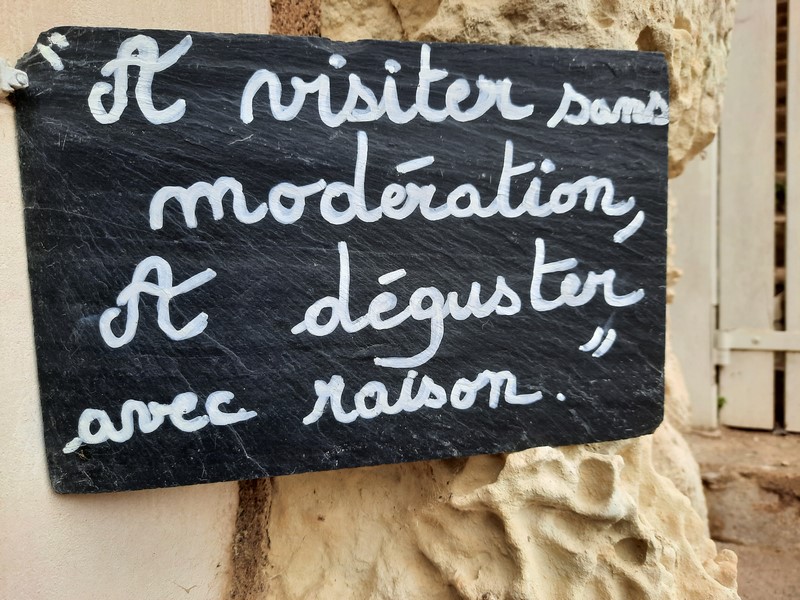 "A visiter sans
modération,
A déguster
avec raison."